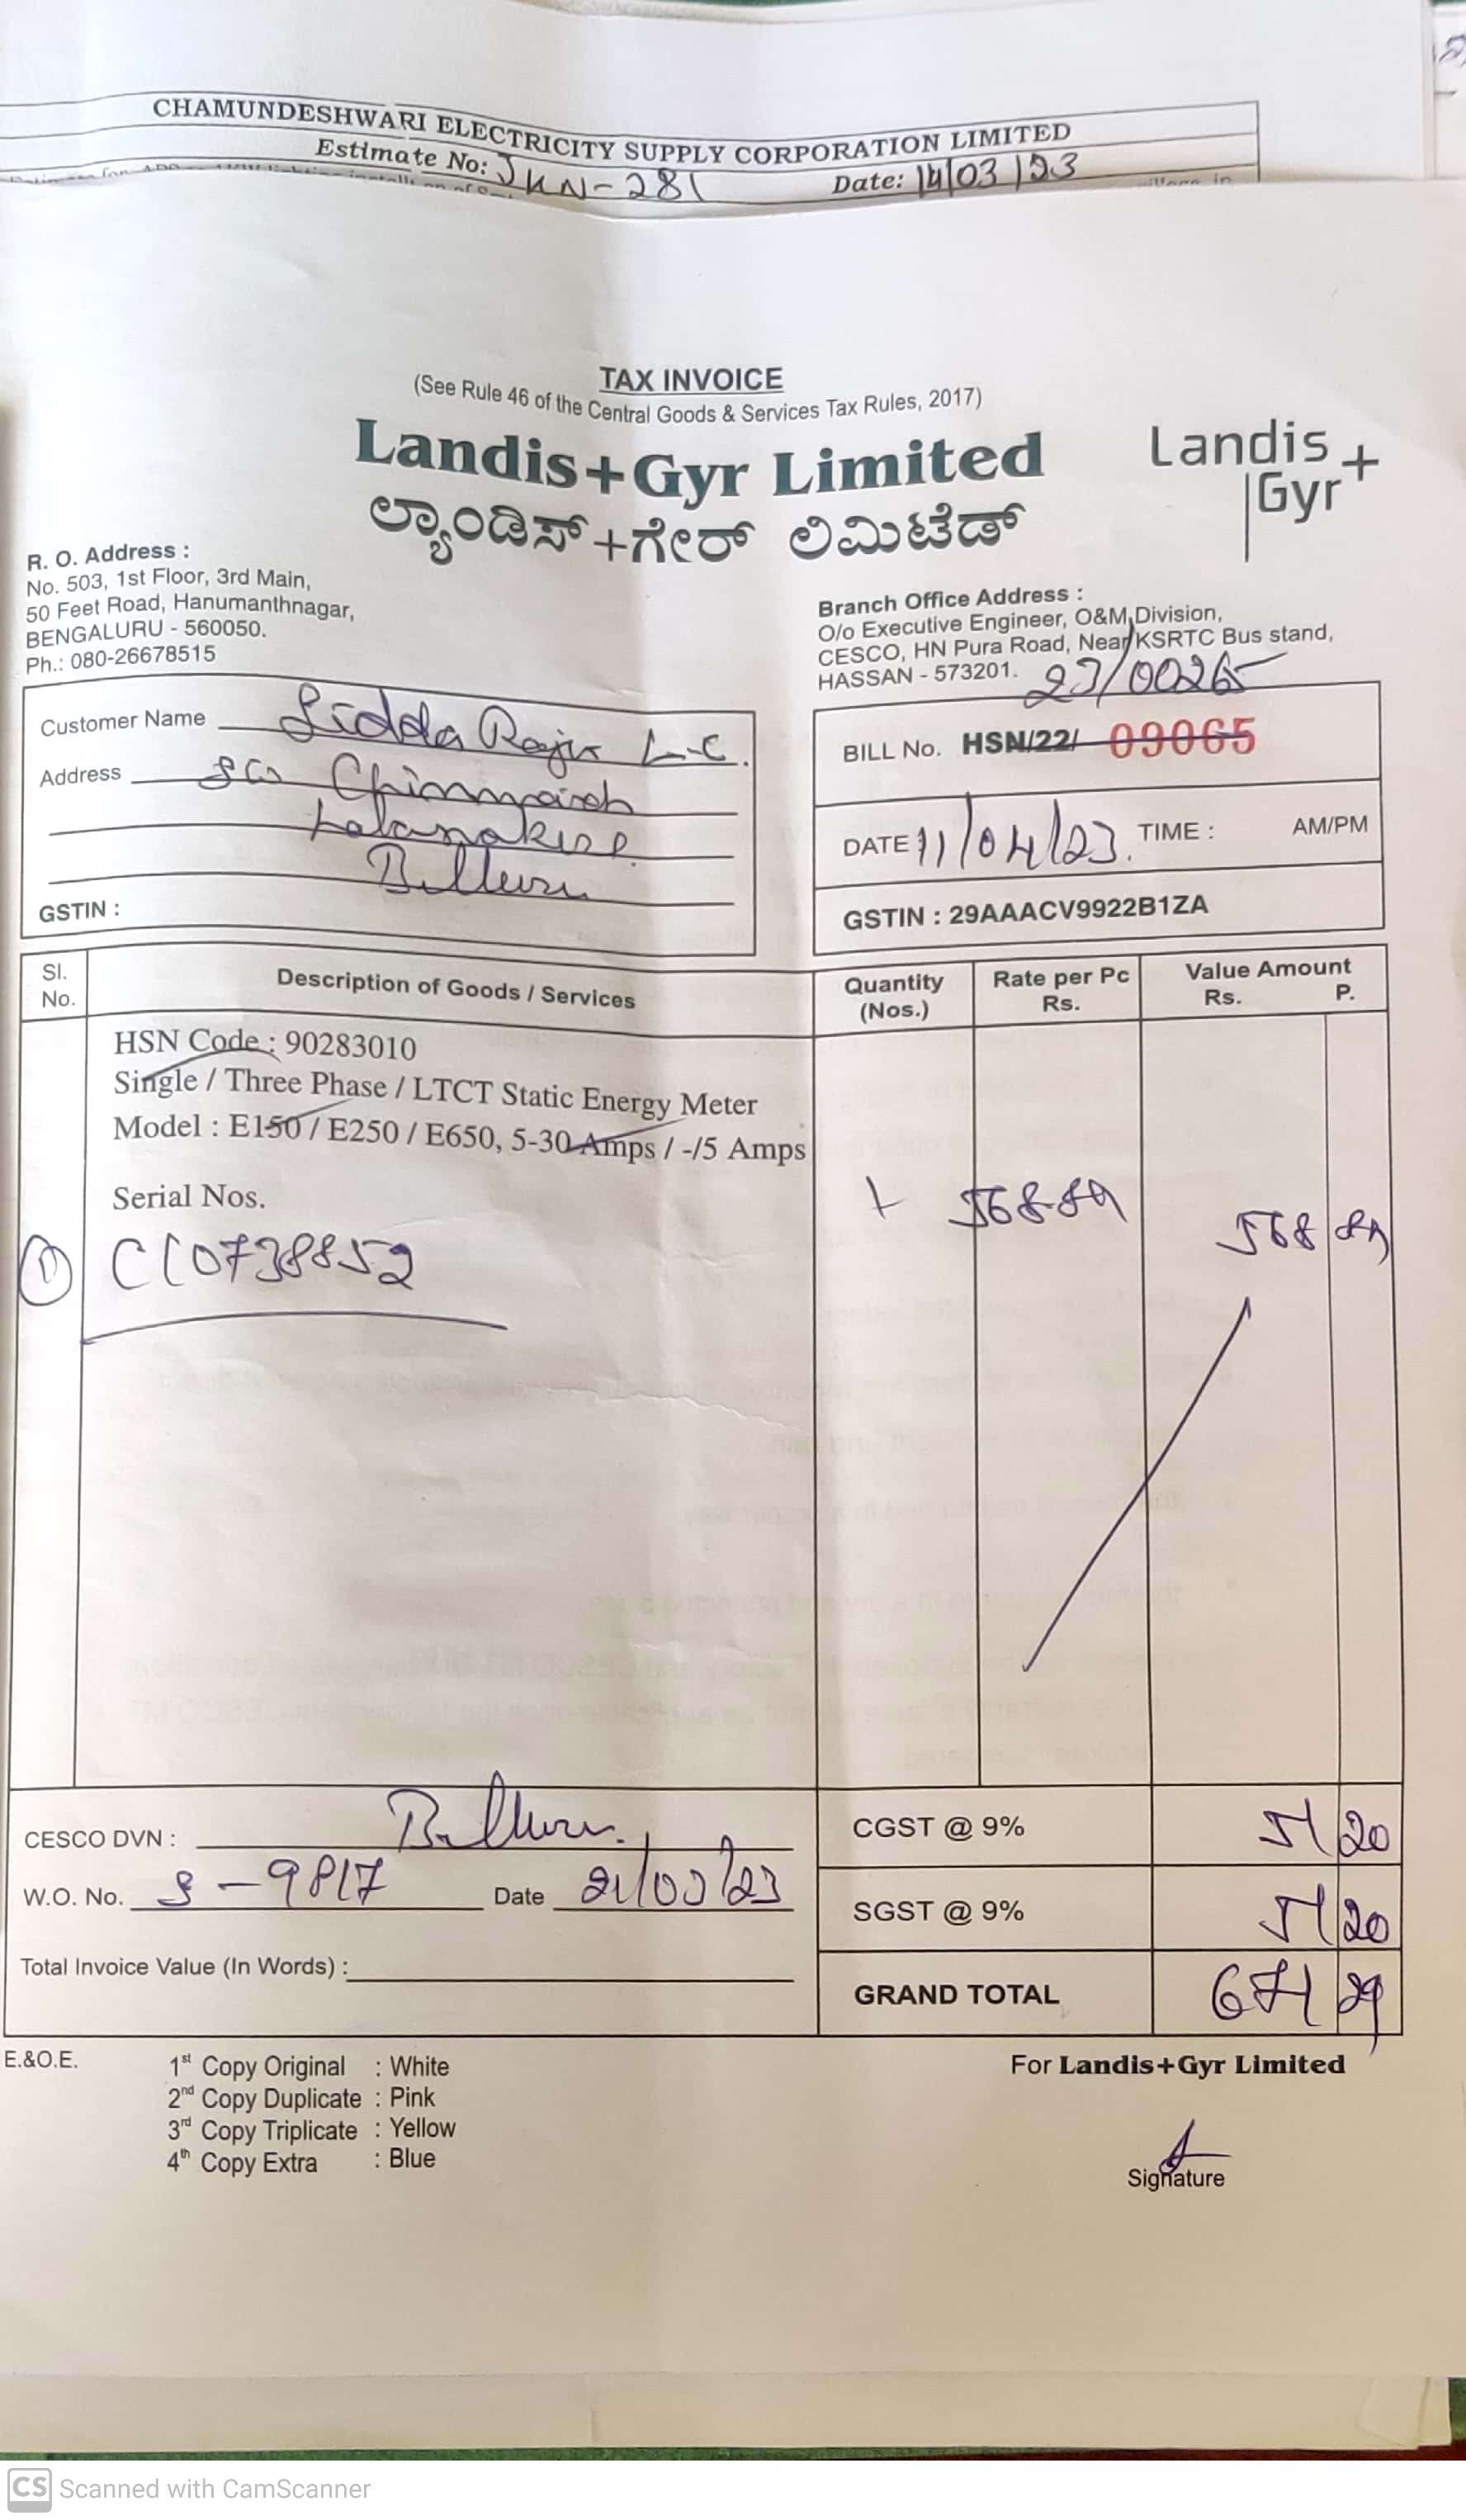 CHAMUNDESHWARI ELECTRICITY SUPPLY CORPORATION LIMITED
Estimate No: JKN-281 Date: 14/03/23
TAX INVOICE
(See Rule 46 of the Central Goods & Services Tax Rules, 2017)
Landis+Gyr Limited
ಲ್ಯಾಂಡಿಸ್+ಗೇರ್ ಲಿಮಿಟೆಡ್
Landis+
Gyr
R. O. Address :
No. 503, 1st Floor, 3rd Main,
50 Feet Road, Hanumanthnagar,
BENGALURU - 560050.
Ph.: 080-26678515
Branch Office Address :
O/o Executive Engineer, O&M Division,
CESCO, HN Pura Road, Near KSRTC Bus stand,
HASSAN - 573201.
23/00265
Customer Name Sidda Raju L-C.
Address S/o
GSTIN :
BILL No. HSN/22/ 09065
DATE 11/04/23. TIME : AM/PM
GSTIN : 29AAACV9922B1ZA
Sl. No. Description of Goods / Services Quantity (Nos.) Rate per Pc Rs. Value Amount Rs. P.
HSN Code : 90283010
Single / Three Phase / LTCT Static Energy Meter
Model : E150 / E250 / E650, 5-30 Amps / -/5 Amps
Serial Nos.
1 568.89 568 89
① CC0738852
CESCO DVN :
W.O. No. S-9817 Date 21/03/23
Total Invoice Value (In Words) :
CGST @ 9% 51 20
SGST @ 9% 51 20
GRAND TOTAL 671 29
E.&O.E.
1st Copy Original : White
2nd Copy Duplicate : Pink
3rd Copy Triplicate : Yellow
4th Copy Extra : Blue
For Landis+Gyr Limited
Signature
CS Scanned with CamScanner